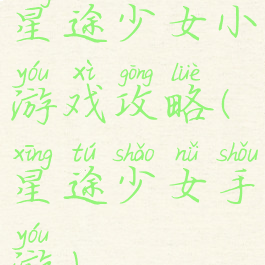 星途少女小
yóu xì gōng lüè
游戏攻略(
xīng tú shǎo nǚ shǒu
星途少女手
yóu
游)